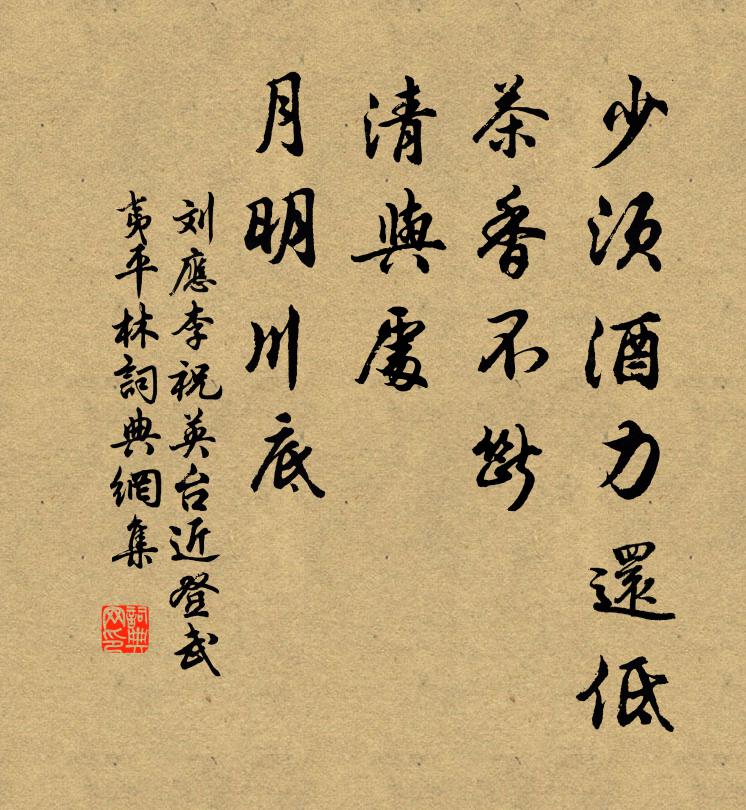 少须酒力還低
茶香不斷
清與處
月明川底
刘應李祝英台近登武
夷平林詞典網集
詞典
网印